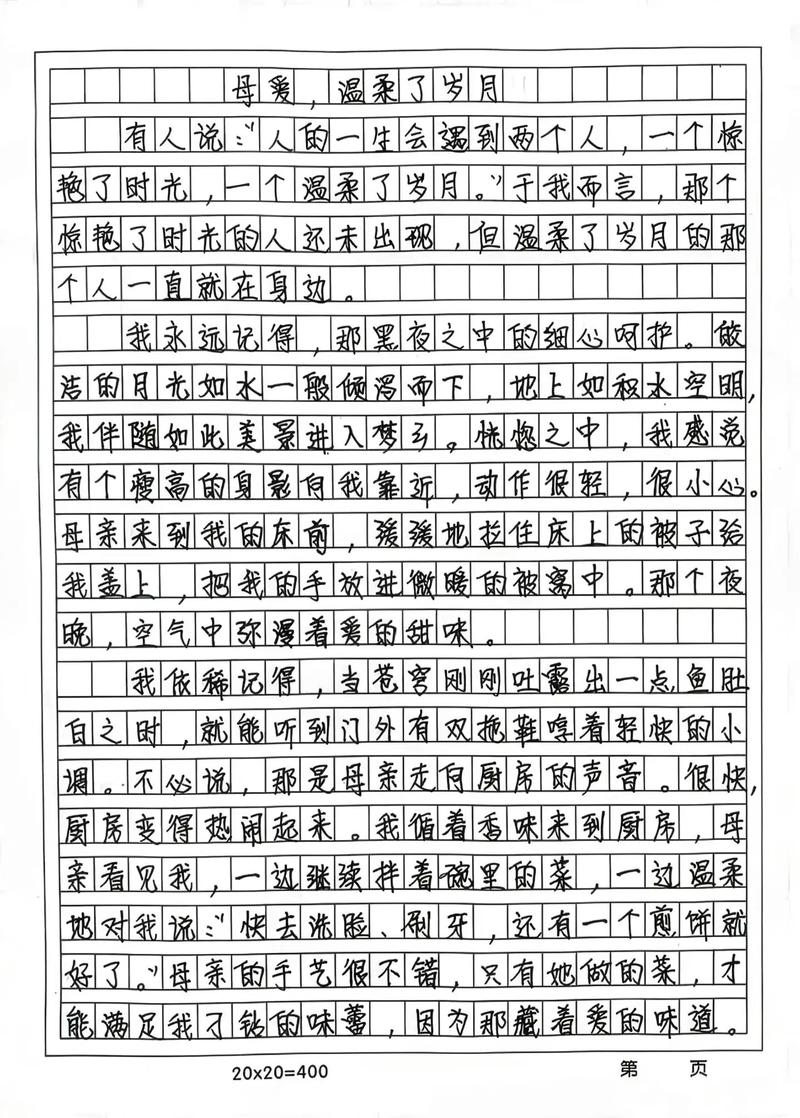 母爱，温柔了岁月
有人说：“人的一生会遇到两个人，一个惊
艳了时光，一个温柔了岁月。”于我而言，那个
惊艳了时光的人还未出现，但温柔了岁月的那
个人一直就在身边。
我永远记得，那黑夜之中的细心呵护。皎
洁的月光如水一般倾泻而下，地上如积水空明，
我伴随如此美景进入梦乡。恍惚之中，我感觉
有个瘦高的身影向我靠近，动作很轻，很小心。
母亲来到我的床前，缓缓地拉住床上的被子给
我盖上，把我的手放进微暖的被窝中。那个夜
晚，空气中弥漫着爱的甜味。
我依稀记得，当苍穹刚刚吐露出一点鱼肚
白之时，就能听到门外有双拖鞋哼着轻快的小
调。不必说，那是母亲走向厨房的声音。很快，
厨房变得热闹起来。我循着香味来到厨房，母
亲看见我，一边继续拌着碗里的菜，一边温柔
地对我说：“快去洗脸、刷牙，还有一个煎饼就
好了。”母亲的手艺很不错，只有她做的菜，才
能满足我刁钻的味蕾，因为那藏着爱的味道。
20×20=400 第 页